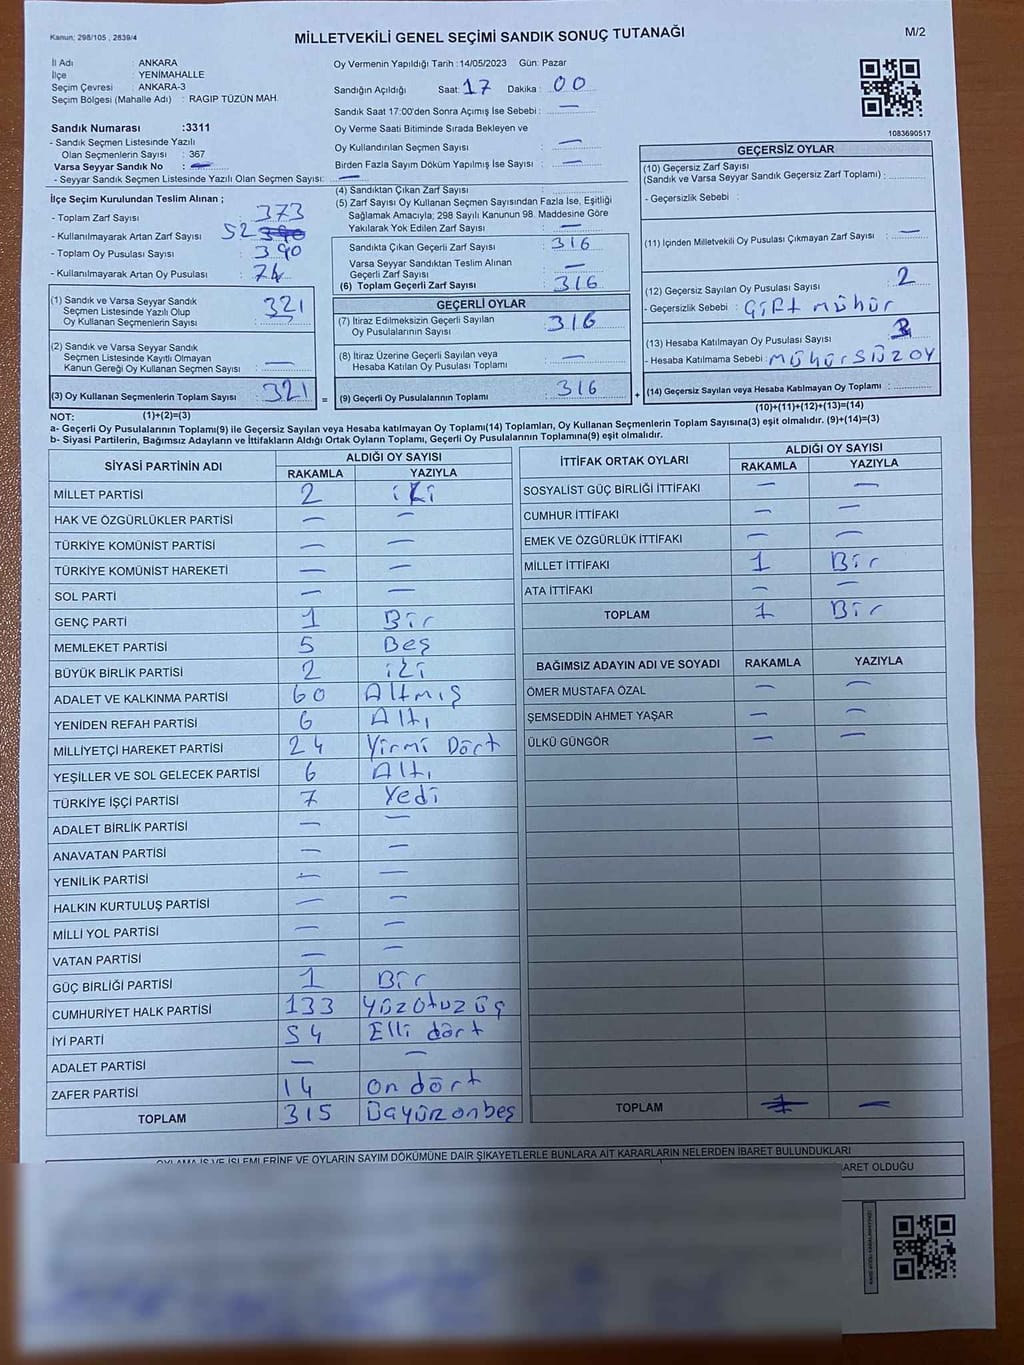 Kanun; 298/105 , 2839/4
MİLLETVEKİLİ GENEL SEÇİMİ SANDIK SONUÇ TUTANAĞI
M/2
İl Adı : ANKARA
İlçe : YENİMAHALLE
Seçim Çevresi : ANKARA-3
Seçim Bölgesi (Mahalle Adı) : RAGIP TÜZÜN MAH.
Sandık Numarası :3311
- Sandık Seçmen Listesinde Yazılı
Olan Seçmenlerin Sayısı : 367
Varsa Seyyar Sandık No : —
- Seyyar Sandık Seçmen Listesinde Yazılı Olan Seçmen Sayısı: —
Oy Vermenin Yapıldığı Tarih :14/05/2023 Gün: Pazar
Sandığın Açıldığı Saat: 17 Dakika: 00
Sandık Saat 17:00'den Sonra Açımış İse Sebebi : —
Oy Verme Saati Bitiminde Sırada Bekleyen ve
Oy Kullandırılan Seçmen Sayısı : —
Birden Fazla Sayım Döküm Yapılmış İse Sayısı : —
1083690517
İlçe Seçim Kurulundan Teslim Alınan ;
- Toplam Zarf Sayısı : 373
- Kullanılmayarak Artan Zarf Sayısı : 52
- Toplam Oy Pusulası Sayısı : 390
- Kullanılmayarak Artan Oy Pusulası : 74
(1) Sandık ve Varsa Seyyar Sandık
Seçmen Listesinde Yazılı Olup
Oy Kullanan Seçmenlerin Sayısı : 321
(2) Sandık ve Varsa Seyyar Sandık
Seçmen Listesinde Kayıtlı Olmayan
Kanun Gereği Oy Kullanan Seçmen Sayısı : —
(3) Oy Kullanan Seçmenlerin Toplam Sayısı : 321 =
(4) Sandıktan Çıkan Zarf Sayısı :
(5) Zarf Sayısı Oy Kullanan Seçmen Sayısından Fazla İse, Eşitliği
Sağlamak Amacıyla; 298 Sayılı Kanunun 98. Maddesine Göre
Yakılarak Yok Edilen Zarf Sayısı : —
Sandıkta Çıkan Geçerli Zarf Sayısı : 316
Varsa Seyyar Sandıktan Teslim Alınan
Geçerli Zarf Sayısı : —
(6) Toplam Geçerli Zarf Sayısı : 316
GEÇERLİ OYLAR
(7) İtiraz Edilmeksizin Geçerli Sayılan
Oy Pusulalarının Sayısı : 316
(8) İtiraz Üzerine Geçerli Sayılan veya
Hesaba Katılan Oy Pusulası Toplamı : —
(9) Geçerli Oy Pusulalarının Toplamı : 316 +
GEÇERSİZ OYLAR
(10) Geçersiz Zarf Sayısı
(Sandık ve Varsa Seyyar Sandık Geçersiz Zarf Toplamı) :
- Geçersizlik Sebebi :
(11) İçinden Milletvekili Oy Pusulası Çıkmayan Zarf Sayısı : —
(12) Geçersiz Sayılan Oy Pusulası Sayısı : 2
- Geçersizlik Sebebi : Çift mühür
(13) Hesaba Katılmayan Oy Pusulası Sayısı :
- Hesaba Katılmama Sebebi : mühürsüz oy
(14) Geçersiz Sayılan veya Hesaba Katılmayan Oy Toplamı :
NOT: (1)+(2)=(3)
(10)+(11)+(12)+(13)=(14)
a- Geçerli Oy Pusulalarının Toplamı(9) ile Geçersiz Sayılan veya Hesaba katılmayan Oy Toplamı(14) Toplamları, Oy Kullanan Seçmenlerin Toplam Sayısına(3) eşit olmalıdır. (9)+(14)=(3)
b- Siyasi Partilerin, Bağımsız Adayların ve İttifakların Aldığı Ortak Oyların Toplamı, Geçerli Oy Pusulalarının Toplamına(9) eşit olmalıdır.
SİYASİ PARTİNİN ADI ALDIĞI OY SAYISI
RAKAMLA YAZIYLA
MİLLET PARTİSİ 2 iki
HAK VE ÖZGÜRLÜKLER PARTİSİ — —
TÜRKİYE KOMÜNİST PARTİSİ — —
TÜRKİYE KOMÜNİST HAREKETİ — —
SOL PARTİ — —
GENÇ PARTİ 1 Bir
MEMLEKET PARTİSİ 5 Beş
BÜYÜK BİRLİK PARTİSİ 2 iki
ADALET VE KALKINMA PARTİSİ 60 Altmış
YENİDEN REFAH PARTİSİ 6 Altı
MİLLİYETÇİ HAREKET PARTİSİ 24 Yirmi Dört
YEŞİLLER VE SOL GELECEK PARTİSİ 6 Altı
TÜRKİYE İŞÇİ PARTİSİ 7 Yedi
ADALET BİRLİK PARTİSİ — —
ANAVATAN PARTİSİ — —
YENİLİK PARTİSİ — —
HALKIN KURTULUŞ PARTİSİ — —
MİLLİ YOL PARTİSİ — —
VATAN PARTİSİ — —
GÜÇ BİRLİĞİ PARTİSİ 1 Bir
CUMHURİYET HALK PARTİSİ 133 Yüzotuzüç
İYİ PARTİ 54 Elli dört
ADALET PARTİSİ — —
ZAFER PARTİSİ 14 On dört
TOPLAM 315 Üçyüzonbeş
İTTİFAK ORTAK OYLARI ALDIĞI OY SAYISI
RAKAMLA YAZIYLA
SOSYALİST GÜÇ BİRLİĞİ İTTİFAKI — —
CUMHUR İTTİFAKI — —
EMEK VE ÖZGÜRLÜK İTTİFAKI — —
MİLLET İTTİFAKI 1 Bir
ATA İTTİFAKI — —
TOPLAM 1 Bir
BAĞIMSIZ ADAYIN ADI VE SOYADI RAKAMLA YAZIYLA
ÖMER MUSTAFA ÖZAL — —
ŞEMSEDDİN AHMET YAŞAR — —
ÜLKÜ GÜNGÖR — —
TOPLAM — —
OYLAMA İŞ VE İŞLEMLERİNE VE OYLARIN SAYIM DÖKÜMÜNE DAİR ŞİKAYETLERLE BUNLARA AİT KARARLARIN NELERDEN İBARET BULUNDUKLARI
ARET OLDUĞU